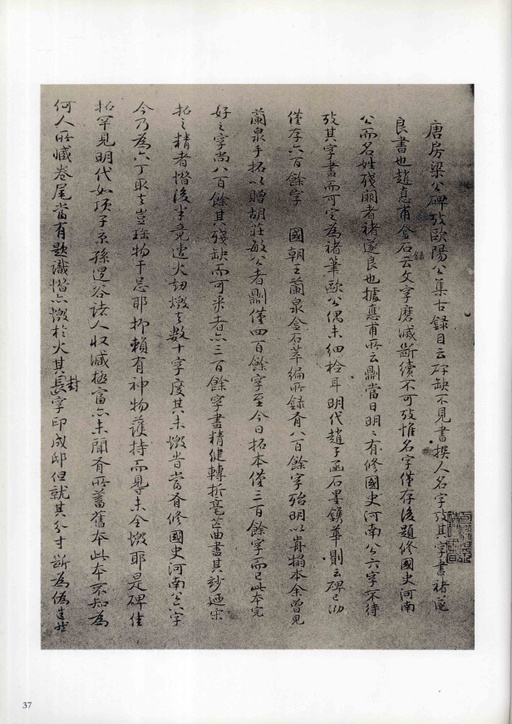 唐房梁公碑攷歐陽公集古錄目云碎缺不見書撰人名字攷其字書褚遂
良書也趙惠甫金石錄云文字磨滅斷續不可攷惟名字僅存後題修國史河南
公而名姓殘闕者褚遂良也據惠甫所云則當日明明有修國史河南公六字不待
攷其字書而可定為褚筆歐公偶未細檢耳明代趙子函石墨鐫華則云碑已泐
僅存六百餘字 國朝王蘭泉金石萃編所錄有八百餘字殆明以前搨本余曾見
蘭泉手拓以贈胡莊敏公者則僅四百餘字至今日拓本僅三百餘字而已此本完
好之字尚八百餘其殘缺而可釆者亦三百餘字書精健轉折毫芒曲書其妙洵宋
拓之精者惜後半竟遭火劫燬之數十字度其未燬者當有修國史河南公六字
今乃為六丁取去豈珍物干忌耶抑賴有神物護持而得未全燬耶是碑佳
拓罕見明代如項子京孫退谷諸人收藏極富亦未聞有所蓄舊本此本不知為
何人所藏卷尾當有題識惜亦燬於火其長字印成邸但就其分寸斷為偽造哉
封
37